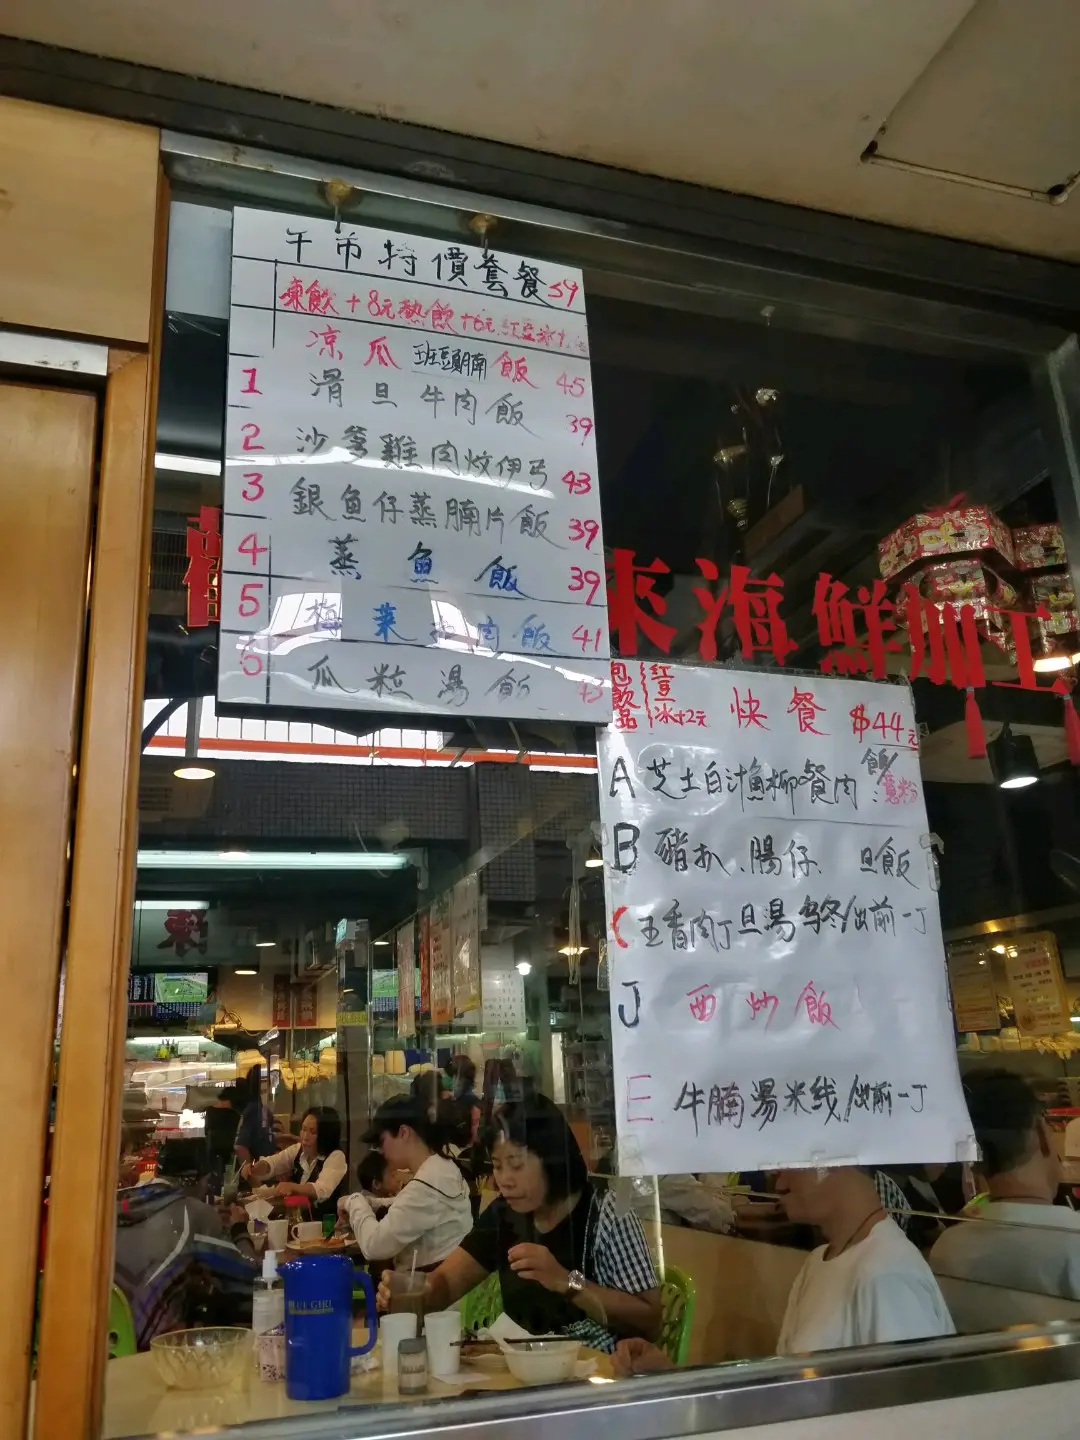 午市特價套餐 59
凍飲+8元熱飲+6元 紅豆冰
涼瓜班頭腩飯 45
1 滑旦牛肉飯 39
2 沙爹雞肉炆伊弓 43
3 銀魚仔蒸腩片飯 39
4 蒸魚飯 39
5 梅菜 肉飯 41
瓜粒湯飯 43
來海鮮加工
包飲品 紅豆冰+2元 快餐 $44元
A 芝士白汁魚柳餐肉 飯/意粉
B 豬扒、腸仔、旦飯
C 五香肉丁旦湯烏冬/出前一丁
J 西炒飯
E 牛腩湯米线/出前一丁
BLUE GIRL